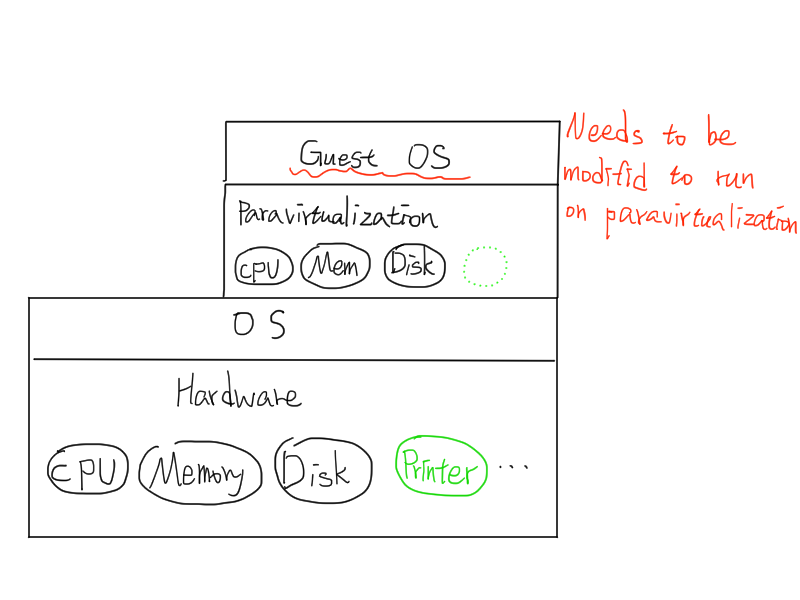 Guest OS
Needs to be
modifid to run
on paravirtualization
Paravirtualization
CPU Mem Disk
OS
Hardware
CPU Memory Disk Printer ...